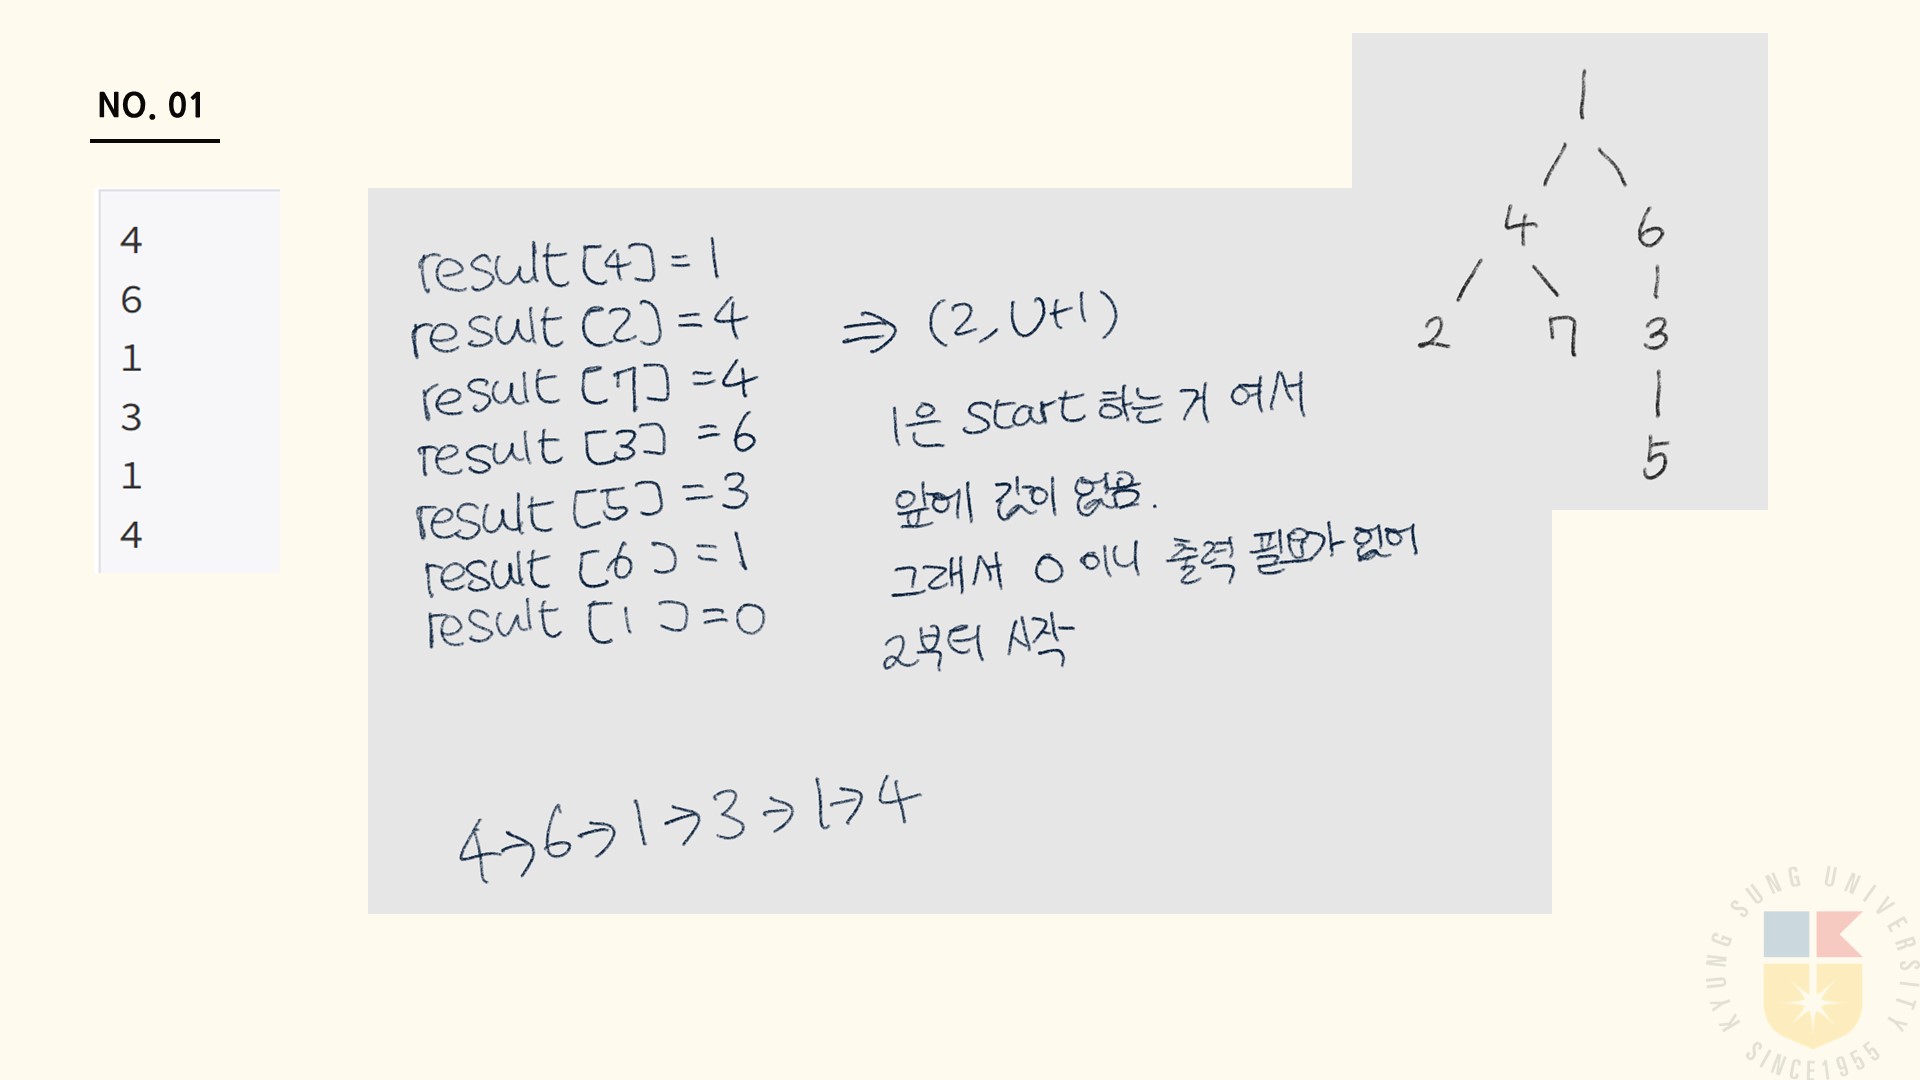 NO. 01
4
6
1
3
1
4
result [4] = 1
result [2] = 4
result [7] = 4
result [3] = 6
result [5] = 3
result [6] = 1
result [1] = 0
⇒ (2, U+1)
1은 Start 하는 거 여서
앞에 값이 없음.
그래서 0 이니 출력 필요가 없어
2부터 시작
4→6→1→3→1→4
1
4 6
2 7 3
5
KYUNG SUNG UNIVERSITY
SINCE1955